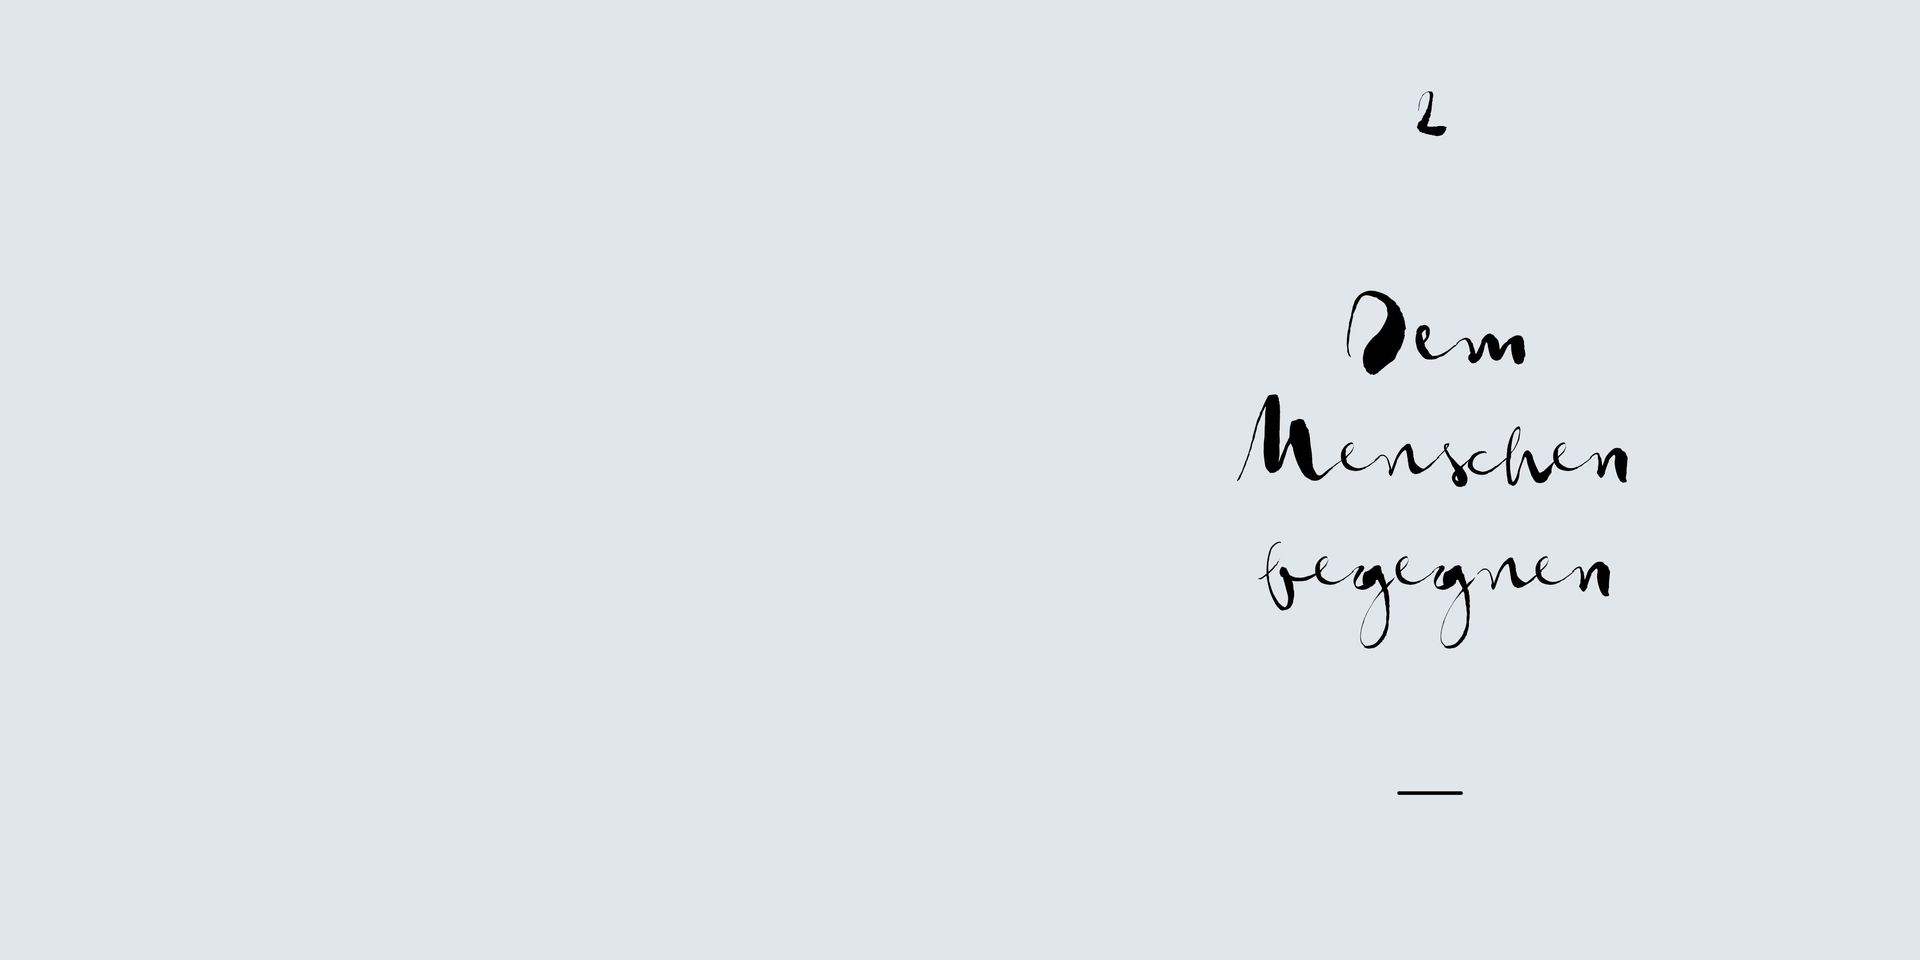 2
Dem
Menschen
begegnen